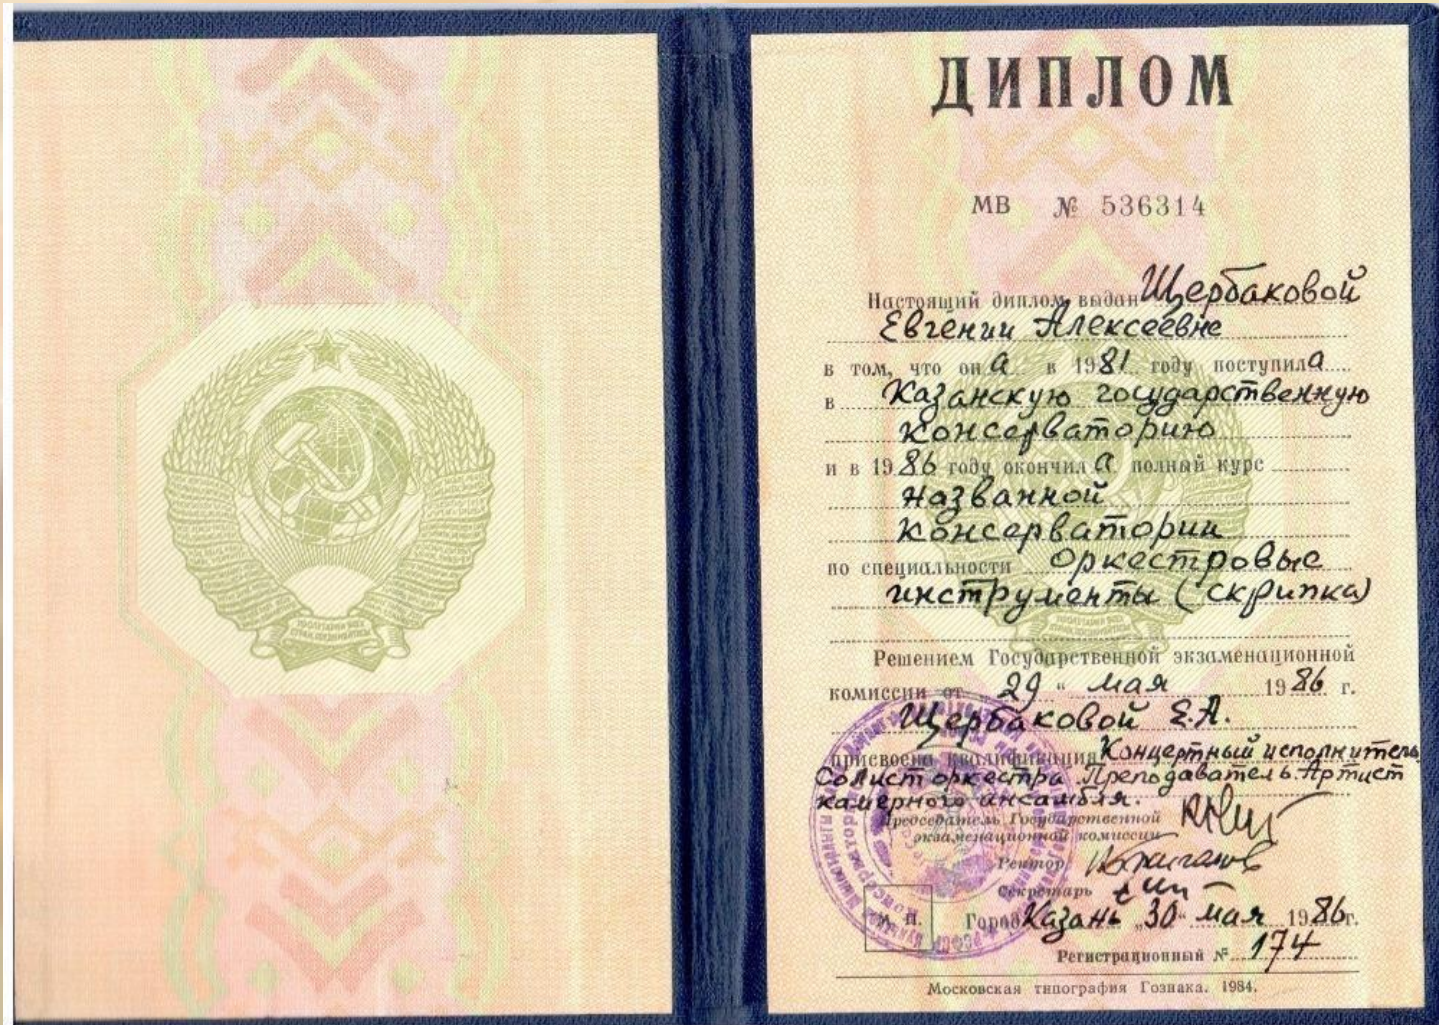 ДИПЛОМ
МВ № 536314
Настоящий диплом выдан Щербаковой
Евгении Алексеевне
в том, что он а в 1981 году поступила
в Казанскую государственную
консерваторию
и в 1986 году окончил а полный курс
названной
консерватории
по специальности оркестровые
инструменты (скрипка)
Решением Государственной экзаменационной
комиссии от 29 " мая 1986 г.
Щербаковой Е.А.
присвоена квалификация Концертный исполнитель
Солист оркестра Преподаватель. Артист
камерного ансамбля.
Председатель Государственной
экзаменационной комиссии
Ректор
Секретарь
М. П.
Город Казань "30" мая 1986г.
Регистрационный № 174
Московская типография Гознака. 1984.
ПРОЛЕТАРИИ ВСЕХ
СТРАН, СОЕДИНЯЙТЕСЬ!